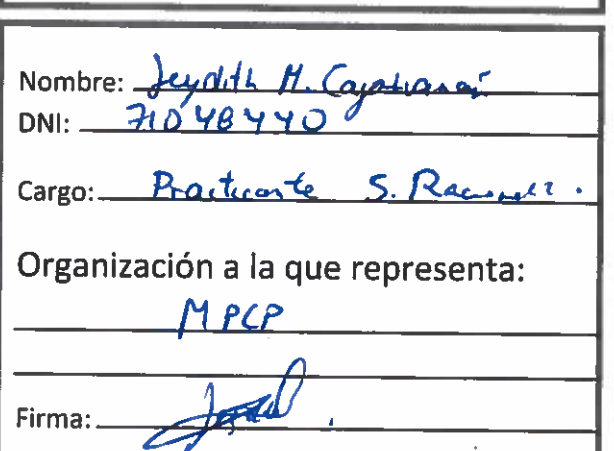 Nombre: Jeydith M.
DNI: 71048440
Cargo: Practicante S.
Organización a la que representa:
MPCP
Firma: